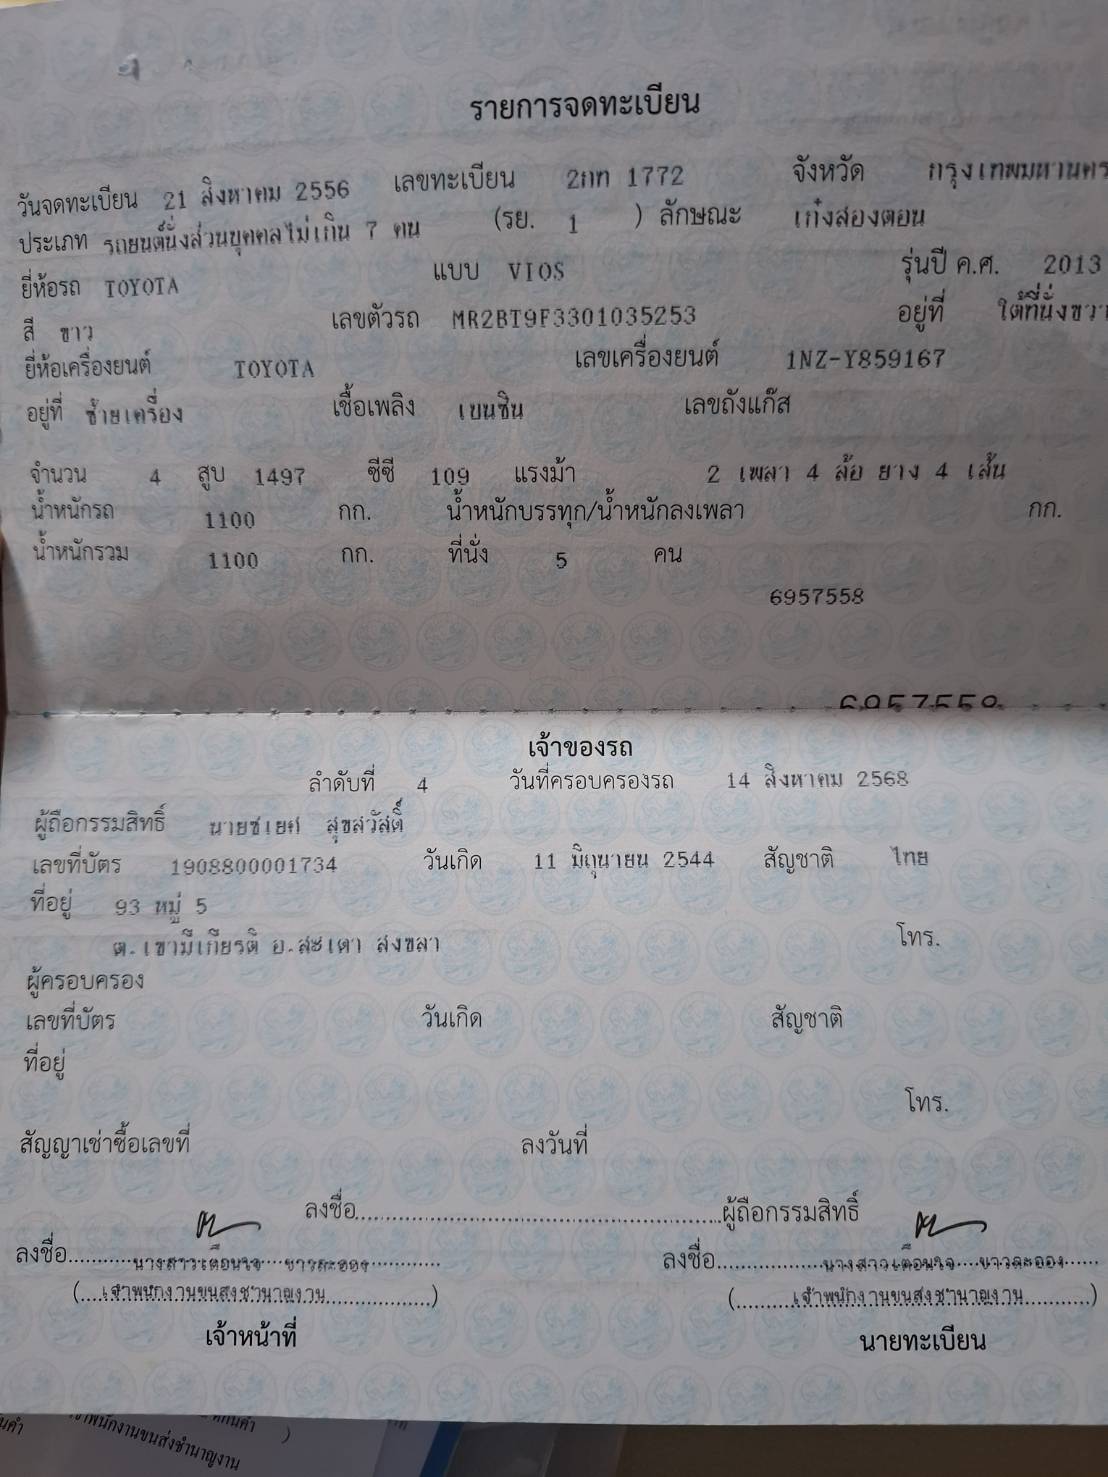 รายการจดทะเบียน
วันจดทะเบียน 21 สิงหาคม 2556 เลขทะเบียน 2กท 1772 จังหวัด กรุงเทพมหานคร
ประเภท รถยนต์นั่งส่วนบุคคลไม่เกิน 7 คน (รย. 1 ) ลักษณะ เก๋งสองตอน
ยี่ห้อรถ TOYOTA แบบ VIOS รุ่นปี ค.ศ. 2013
สี ขาว เลขตัวรถ MR2BT9F3301035253 อยู่ที่ ใต้ที่นั่งขวา
ยี่ห้อเครื่องยนต์ TOYOTA เลขเครื่องยนต์ 1NZ-Y859167
อยู่ที่ ซ้ายเครื่อง เชื้อเพลิง เบนซิน เลขถังแก๊ส
จำนวน 4 สูบ 1497 ซีซี 109 แรงม้า 2 เพลา 4 ล้อ ยาง 4 เส้น
น้ำหนักรถ 1100 กก. น้ำหนักบรรทุก/น้ำหนักลงเพลา กก.
น้ำหนักรวม 1100 กก. ที่นั่ง 5 คน
6957558
6957558
เจ้าของรถ
ลำดับที่ 4 วันที่ครอบครองรถ 14 สิงหาคม 2568
ผู้ถือกรรมสิทธิ์ นายชเยศ สุขสวัสดิ์
เลขที่บัตร 1908800001734 วันเกิด 11 มิถุนายน 2544 สัญชาติ ไทย
ที่อยู่ 93 หมู่ 5
ต.เขามีเกียรติ อ.สะเดา สงขลา โทร.
ผู้ครอบครอง
เลขที่บัตร วันเกิด สัญชาติ
ที่อยู่
โทร.
สัญญาเช่าซื้อเลขที่ ลงวันที่
ลงชื่อ ผู้ถือกรรมสิทธิ์
ลงชื่อ นางสาวเตือนใจ ขาวละออง ลงชื่อ นางสาวเตือนใจ ขาวละออง
(เจ้าพนักงานขนส่งชำนาญงาน) (เจ้าพนักงานขนส่งชำนาญงาน)
เจ้าหน้าที่ นายทะเบียน
เจ้าพนักงานขนส่งชำนาญงาน )